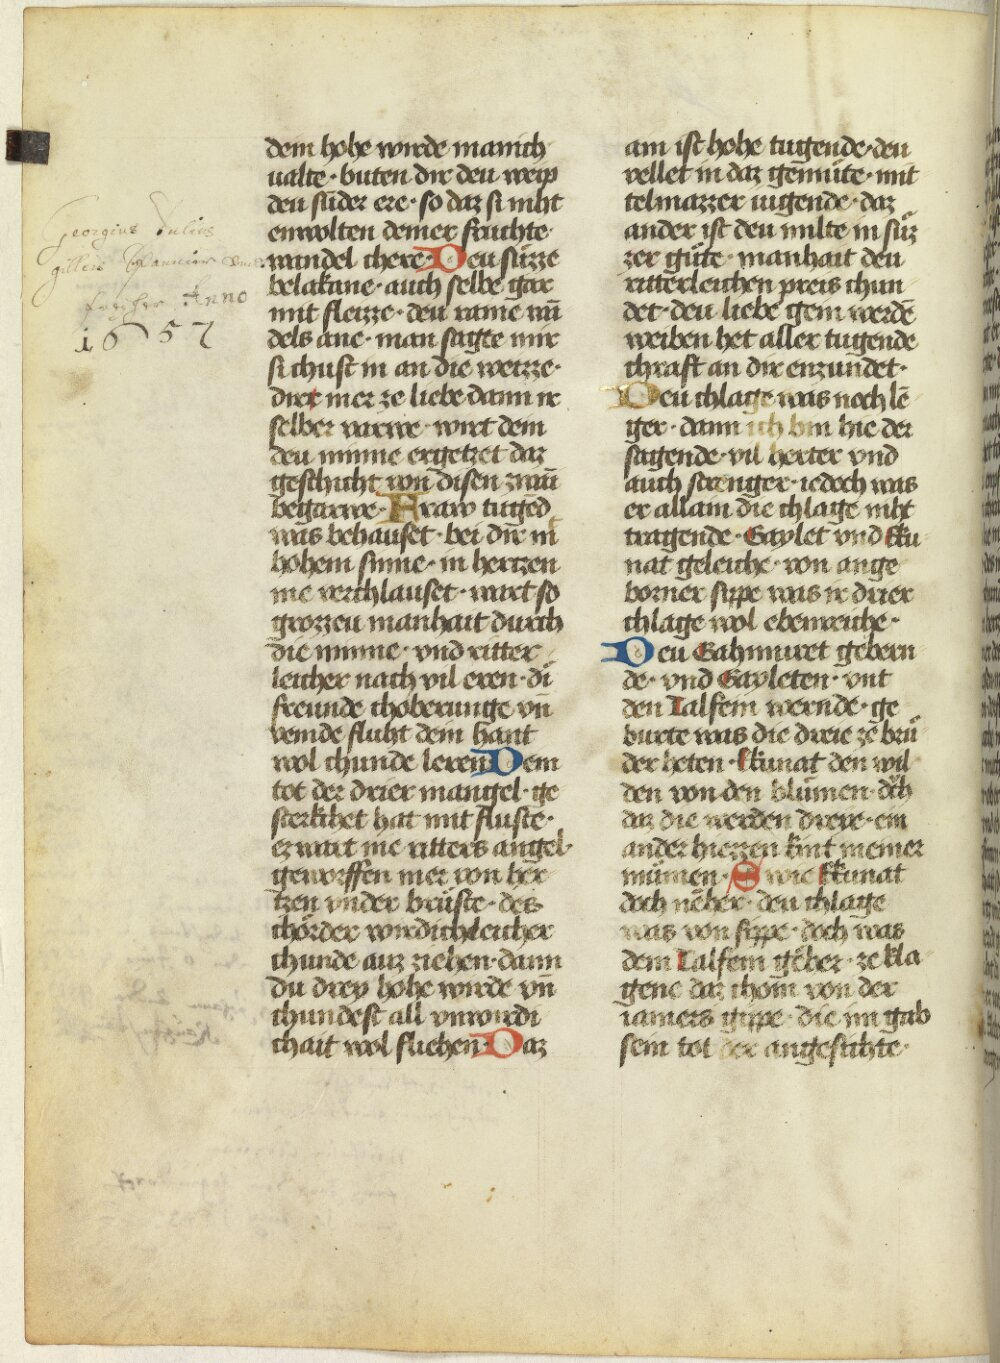 dem hohe wirde manich
ualte · buten dir deu weip
deu suͤder ere · so daz si niht
enwolten deiner fruchte
wandel chere · Deu suͤzze
belakane · auch selbe gar
mit fleizze · deu rame wā
dels ane · man sagte mir
si chust in an die weizze ·
dirr mer ze liebe dann ir
selber varwe · wirt dem
deu minne ergetzet daz
geschicht von disen zwaū
begarwe · Fraw tugēd
was behauset · bei dir in
hohem sinne · in hertzen
nie verchlauset · wart so
grozzeu manhait durch
die minne · vnd ritter
leicher nach vil eren · di
freunde choberunge vn̄
veinde fluht dem hant
wol chunde leren Dem
tot der drier mangel · ge
sterkhet hat mit fluste ·
ez wart nie ritters angel ·
geworffen mer von her
tzen vnder brüste · des
chörder wirdichleicher
chunde auz ziehen · dann
du drey hohe wirde vn̄
chundest all vnwirdi
chait wol fliehen · Daz
am ist hohe tugende · deu
vellet in daz gemüte · mit
telmazzer iugende · daz
ander ist deu milte in süz
zer güte · manhait deu
ritterleichen preis chun
det · deu liebe gern werdē
weiben het aller tugende
chraft an dir enzundet ·
Deu chlage was noch lē
ger · dann ich bin hie der
sagende · vil herter vnd
auch strenger · iedoch was
er allain die chlage niht
tragende · Gaylet vnd kku
nat geleiche · von ange
borner sippe was ir drier
chlage wol ebenreiche ·
Deu Gahmuret gebern
de · vnd Gayleten · vnt
den Talfein wernde · ge
burte was die dreie ze brü
der heten · kkunat den wil
den von den blümen · doch
daz die werden dreie · ein
ander hiezzen kint meiner
mümen · Swie kkunat
doch neher · deu chlage
was von sippe · doch was
dem Talfein geher · ze kla
gene daz chom von der
iamers gippe · die im gab
sein tot der angesihte ·
Georgius
Anno
1657